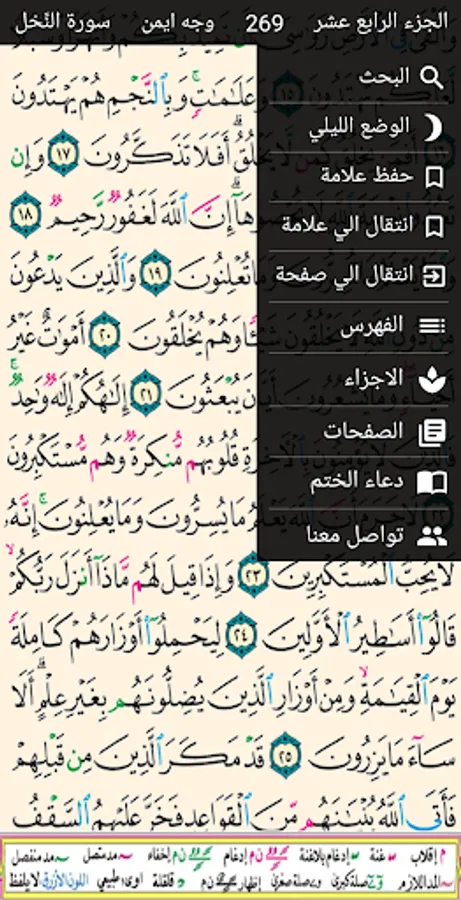 الجزء الرابع عشر 269 وجه ايمن سورة النّحل
البحث
الوضع الليلي
حفظ علامة
انتقال الي علامة
انتقال الي صفحة
الفهرس
الاجزاء
الصفحات
دعاء الختم
تواصل معنا
وَعَلَٰمَٰتٍ ۚ وَبِٱلنَّجْمِ هُمْ يَهْتَدُونَ
يَخْلُقُ ۗ أَفَلَا تَذَكَّرُونَ ١٧ وَإِن
إِنَّ ٱللَّهَ لَغَفُورٌ رَّحِيمٌ ١٨
تُعْلِنُونَ ١٩ وَٱلَّذِينَ يَدْعُونَ
وَهُمْ يُخْلَقُونَ ٢٠ أَمْوَٰتٌ غَيْرُ
يُبْعَثُونَ ٢١ إِلَٰهُكُمْ إِلَٰهٌ وَٰحِدٌ ۚ
قُلُوبُهُم مُّنكِرَةٌ وَهُم مُّسْتَكْبِرُونَ
مَا يُسِرُّونَ وَمَا يُعْلِنُونَ ۚ إِنَّهُۥ
لَا يُحِبُّ ٱلْمُسْتَكْبِرِينَ ٢٣ وَإِذَا قِيلَ لَهُم مَّاذَآ أَنزَلَ رَبُّكُمْ ۙ
قَالُوٓا۟ أَسَٰطِيرُ ٱلْأَوَّلِينَ ٢٤ لِيَحْمِلُوٓا۟ أَوْزَارَهُمْ كَامِلَةً
يَوْمَ ٱلْقِيَٰمَةِ ۙ وَمِنْ أَوْزَارِ ٱلَّذِينَ يُضِلُّونَهُم بِغَيْرِ عِلْمٍ ۗ أَلَا
سَآءَ مَا يَزِرُونَ ٢٥ قَدْ مَكَرَ ٱلَّذِينَ مِن قَبْلِهِمْ
فَأَتَى ٱللَّهُ بُنْيَٰنَهُم مِّنَ ٱلْقَوَاعِدِ فَخَرَّ عَلَيْهِمُ ٱلسَّقْفُ
م إقلاب غنة إدغام بلاغنة ن م إدغام ن م إخفاء مد متصل مد منفصل
المد اللازم صلة كبرى صلة صغرى إظهار ن م قلقلة اوى طبيعي اللون الأزرق لا يلفظ